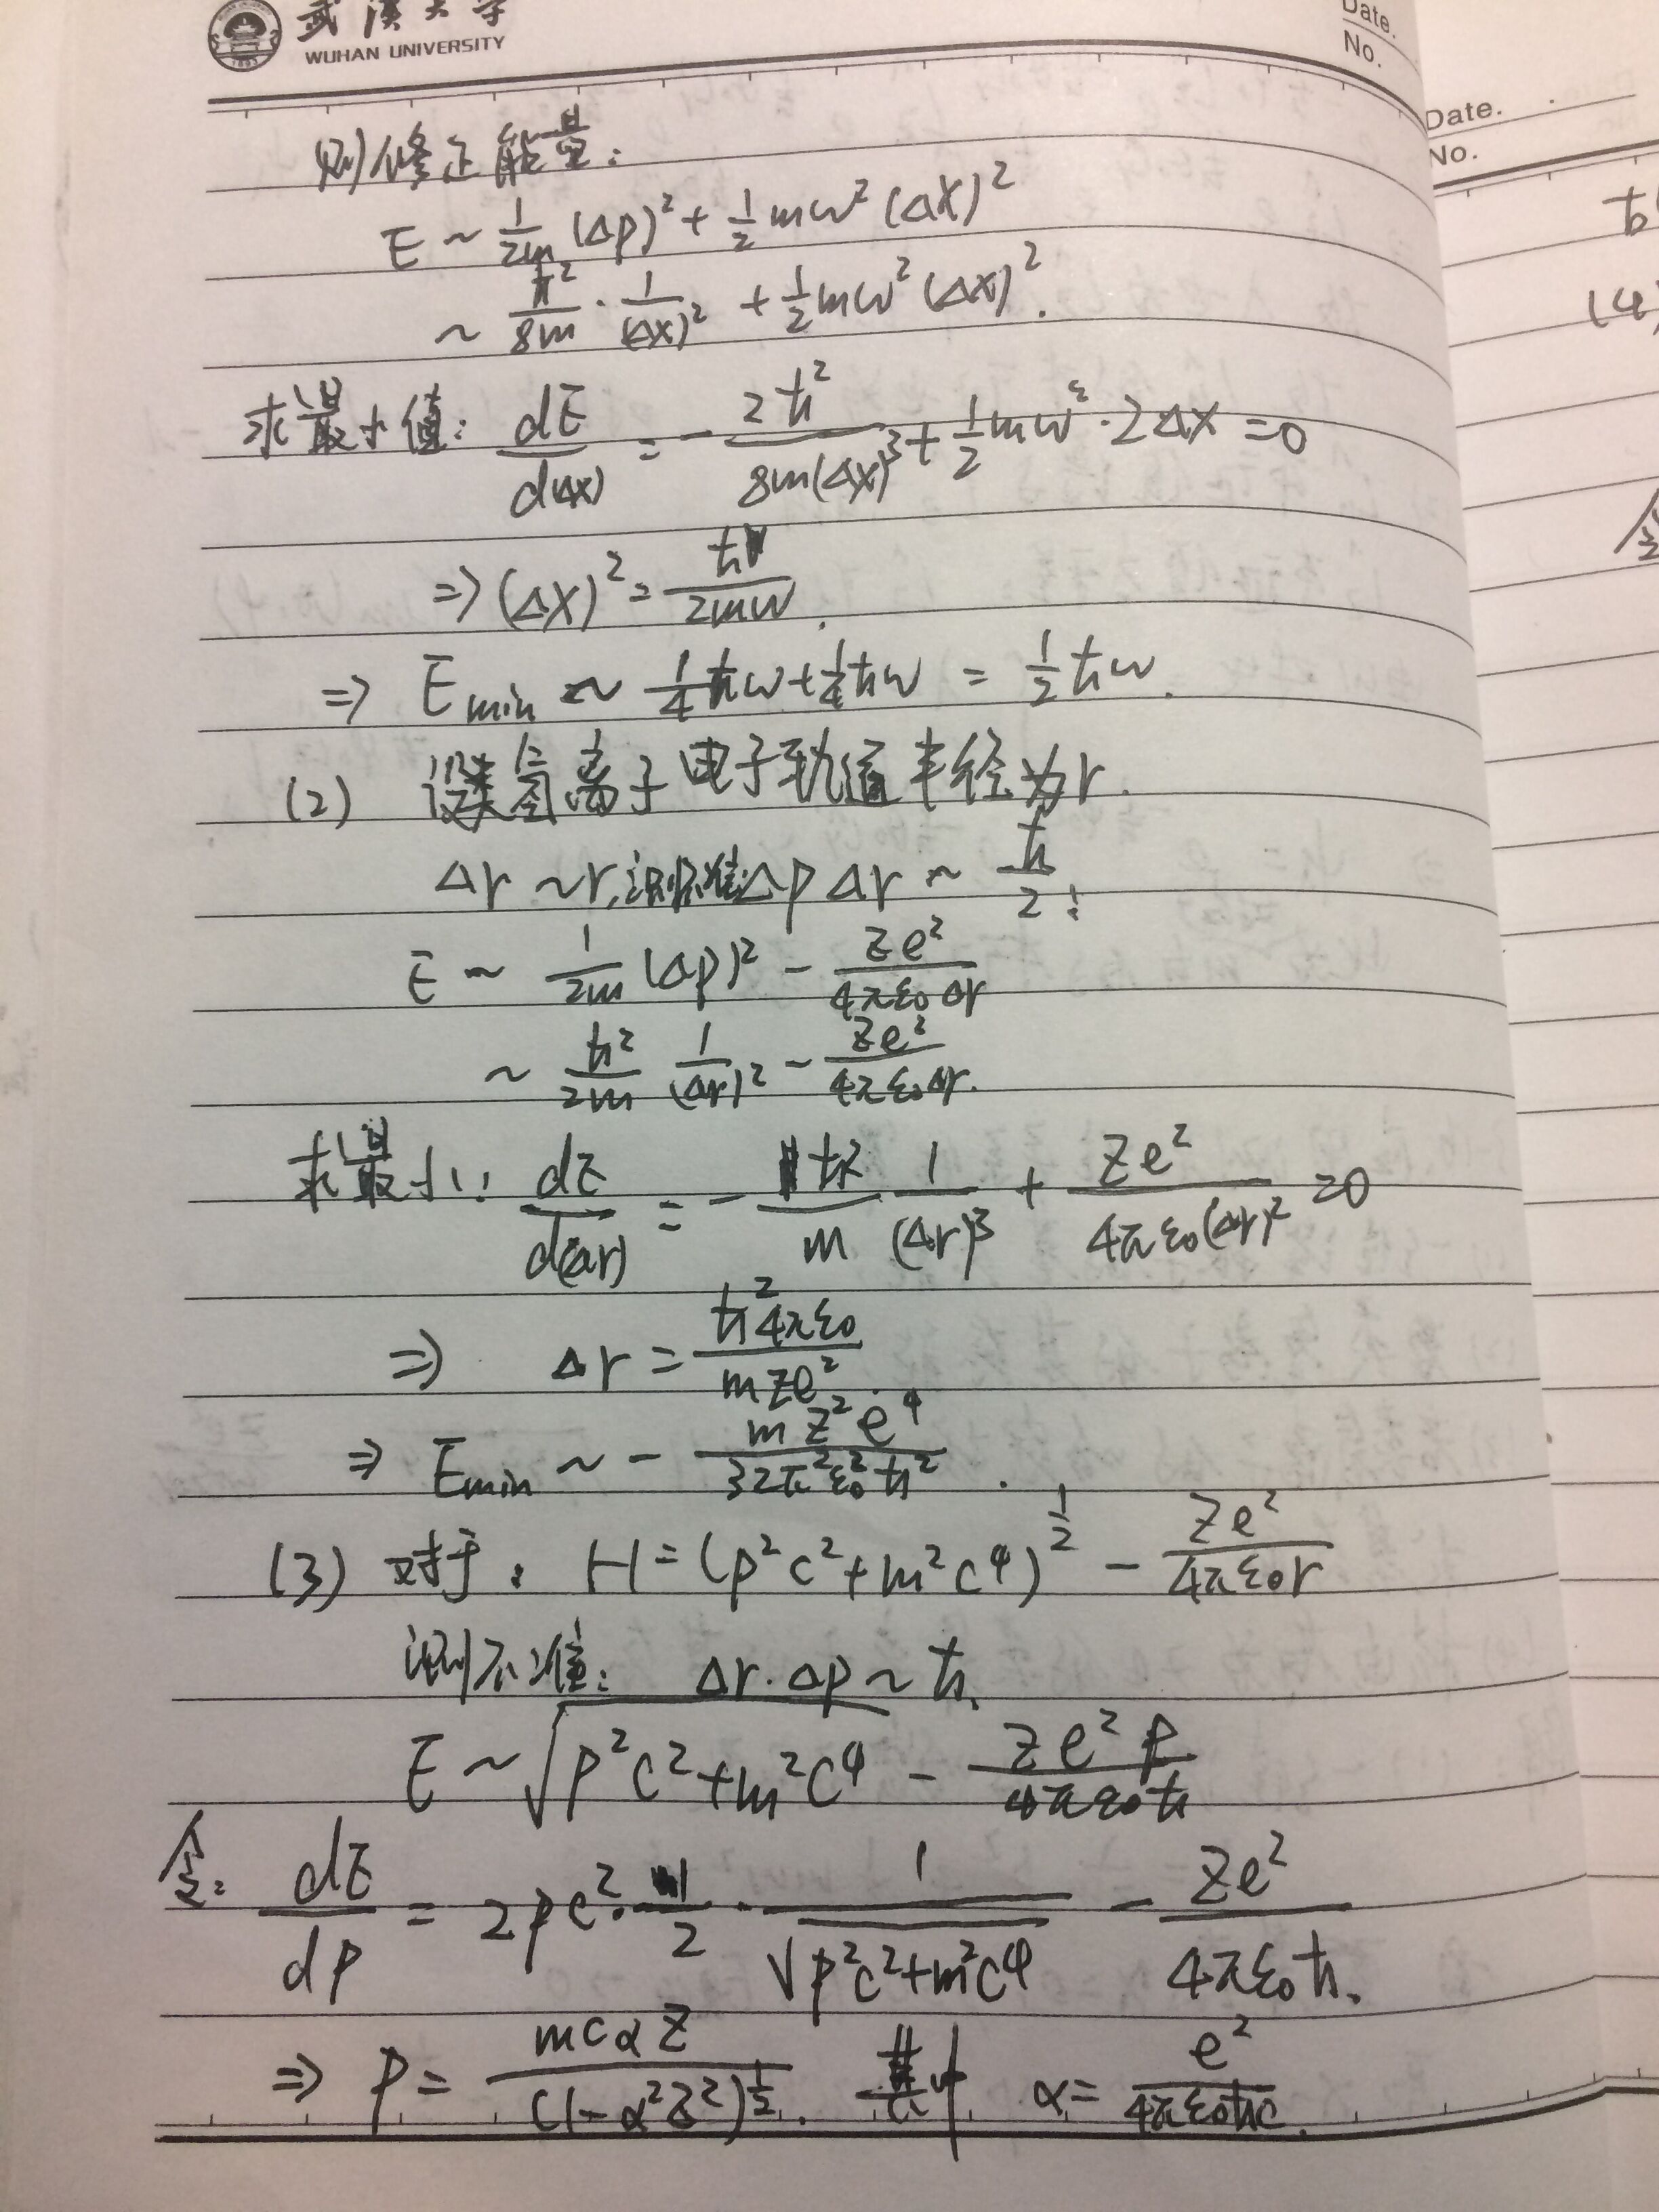 武漢大学
WUHAN UNIVERSITY
Date.
No.
Date.
No.
则修正能量:
E ~ 1/2m (Δp)² + 1/2 mω² (ΔX)²
~ ħ²/8m · 1/(ΔX)² + 1/2 mω² (ΔX)².
求最小值: dE/d(ΔX) = - 2ħ²/8m(ΔX)³ + 1/2 mω² · 2ΔX = 0
⇒ (ΔX)² = ħ/2mω.
⇒ Emin ~ 1/4 ħω + 1/4 ħω = 1/2 ħω.
(2) 设类氢离子电子轨道半径为r.
Δr ~ r, 测不准: Δp Δr ~ ħ/2:
E ~ 1/2m (Δp)² - Ze²/4πε₀Δr
~ ħ²/2m 1/(Δr)² - Ze²/4πε₀Δr.
求最小: dE/d(Δr) = - ħ²/m 1/(Δr)³ + Ze²/4πε₀(Δr)² = 0
⇒ Δr = ħ²4πε₀/mZe².
⇒ Emin ~ - mZ²e⁴/32π²ε₀²ħ².
(3) 对于: H = (p²c² + m²c⁴)^1/2 - Ze²/4πε₀r
测不准: Δr · Δp ~ ħ.
E ~ √p²c² + m²c⁴ - Ze²p/4πε₀ħ
令: dE/dp = 2pc² · 1/2 · 1/√p²c² + m²c⁴ - Ze²/4πε₀ħ.
⇒ p = mcαZ/(1-α²Z²)^1/2. 其中 α = e²/4πε₀ħc.
(4)